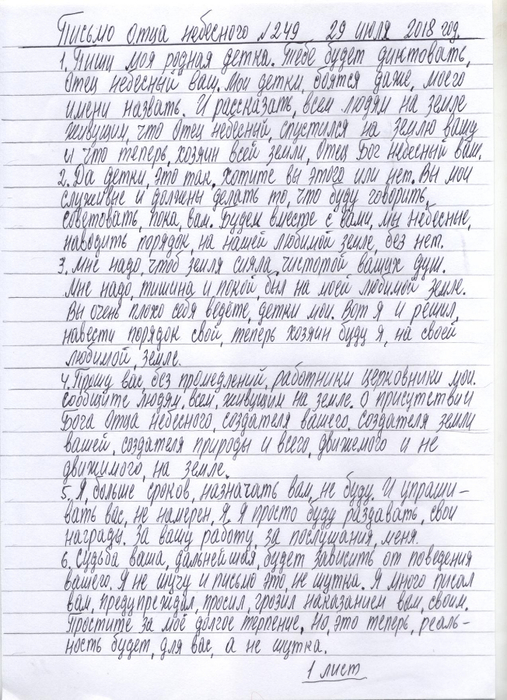 Письмо Отца небесного №249 29 июля 2018 год.
1. Пиши моя родная детка. Тебе будет диктовать,
Отец небесный ваш. Мои детки, боятся даже, моего
имени назвать. И рассказать, всем людям на земле
живущим, что Отец небесный, спустился на Землю вашу
и что теперь, хозяин всей земли, Отец Бог небесный ваш.
2. Да детки, это так, хотите вы этого или нет. Вы мои
служивые и должны делать то, что буду говорить,
советовать, пока, вам. Будем вместе с вами, мы небесные,
наводить порядок, на нашей любимой земле, без нет.
3. Мне надо, чтоб земля сияла, чистотой ваших душ.
Мне надо, тишина и покой, был на моей любимой земле.
Вы очень плохо себя ведёте, детки мои. Вот я и решил,
навести порядок свой, теперь хозяин буду я, на своей
любимой, земле.
4. Прошу вас, без промедлений, работники церковники мои.
сообщите людям, всем, живущим на земле. О присутствии
Бога Отца небесного, создателя вашего, создателя земли
вашей, создателя природы и всего, движемого и не
движимого, на земле.
5. Я, больше сроков, назначать вам, не буду. И упраши-
вать вас, не намерен, Я. Я просто буду раздавать, свои
награды. За вашу работу, за послушания, меня.
6. Судьба ваша, дальнейшая, будет зависить от поведения
вашего. Я не шучу и письмо это, не шутка. Я много писал
вам, предупреждал, просил, грозил наказанием вам, своим.
Простите за моё долгое терпение. Но, это теперь, реаль-
ность будет, для вас, а не шутка.
1 лист